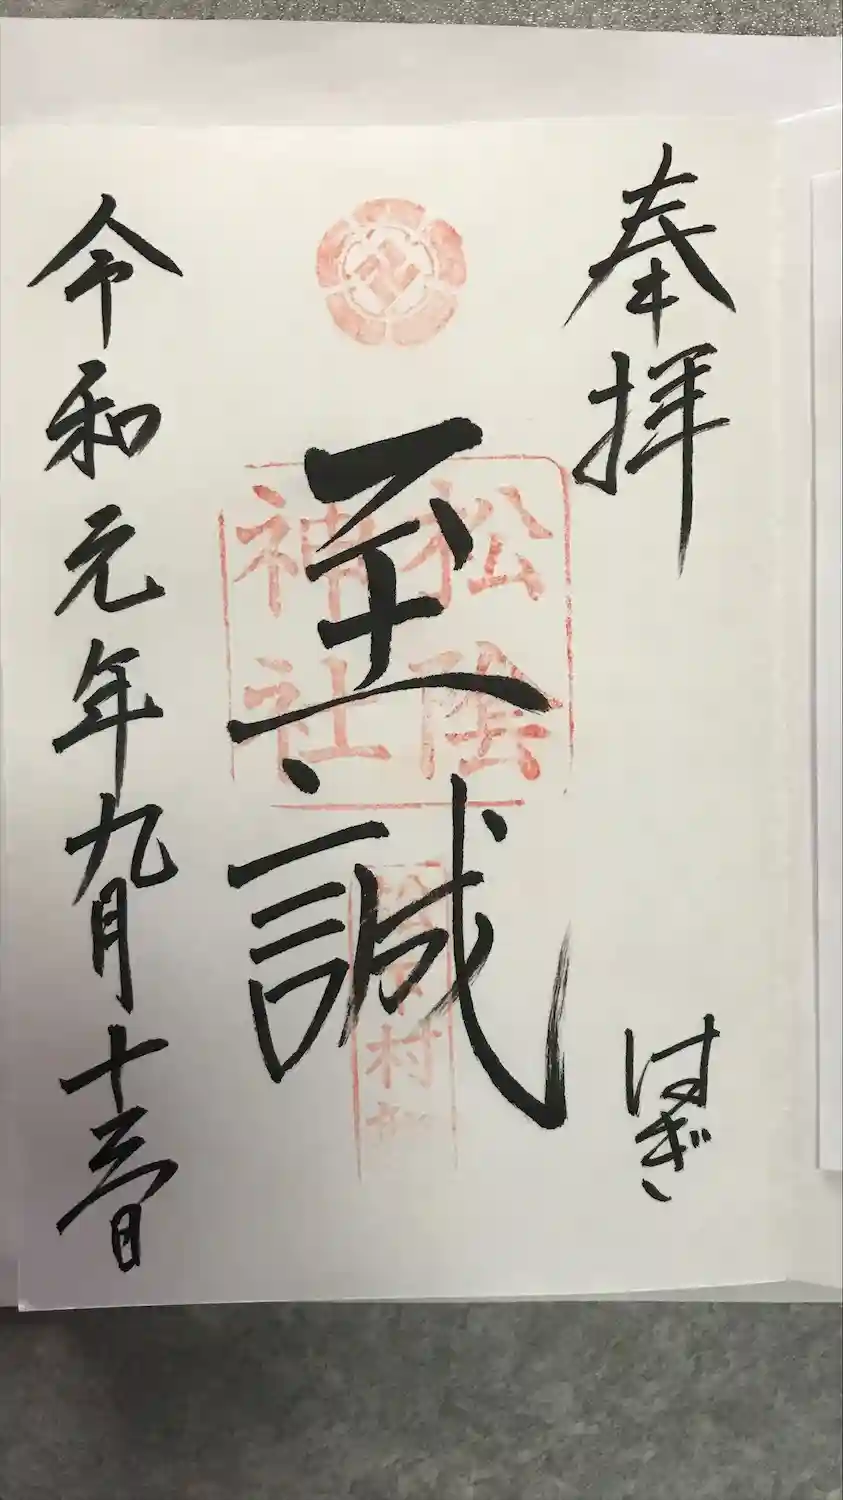 奉拝
はぎ
至誠
松陰
神社
松下村塾
令和元年九月十日